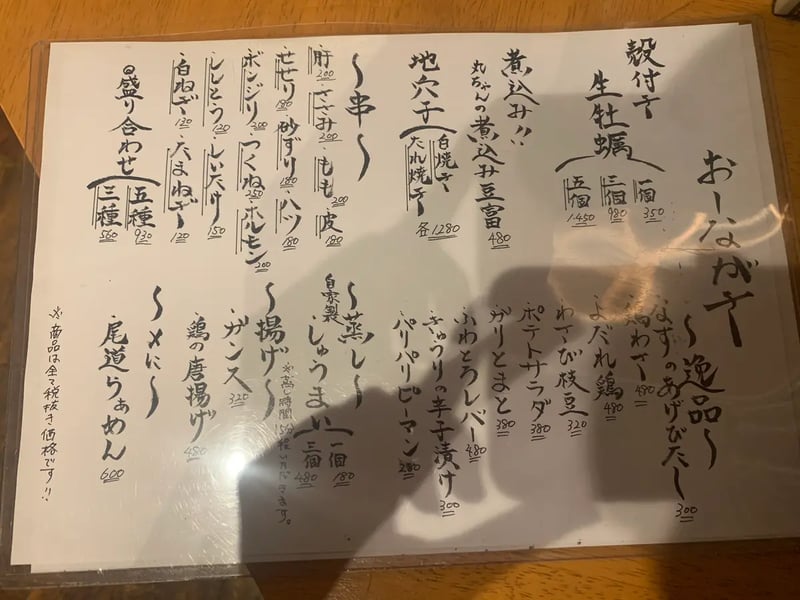 おーながき
殻付き
生牡蠣
一個 350
三個 980
五個 1450
煮込み!!
丸ちゃんの煮込み豆富 480
地穴子
白焼き
たれ焼き
各1280
〜串〜
肝 200
ささみ 200
もも 200
皮 180
せせり 180
砂ずり 180
ハツ 180
ボンジリ 200
つくね 250
ホルモン 200
ししとう 120
しいたけ 150
白ねぎ 120
たまねぎ 120
盛り合わせ
五種 930
三種 560
〜逸品〜
なすのあげびたし 300
鶏わさ 480
よだれ鶏 480
わさび枝豆 320
ポテトサラダ 380
ガリとまと 380
ふわとろレバー 480
きゅうりの辛子漬け 300
パリパリピーマン 280
〜蒸し〜
自家製
しゅうまい
一個 180
三個 480
※蒸し時間15分程いただきます。
〜揚げ〜
ガンス 320
鶏の唐揚げ 480
〜〆に〜
尾道らぁめん 600
※商品は全て税抜き価格です!!